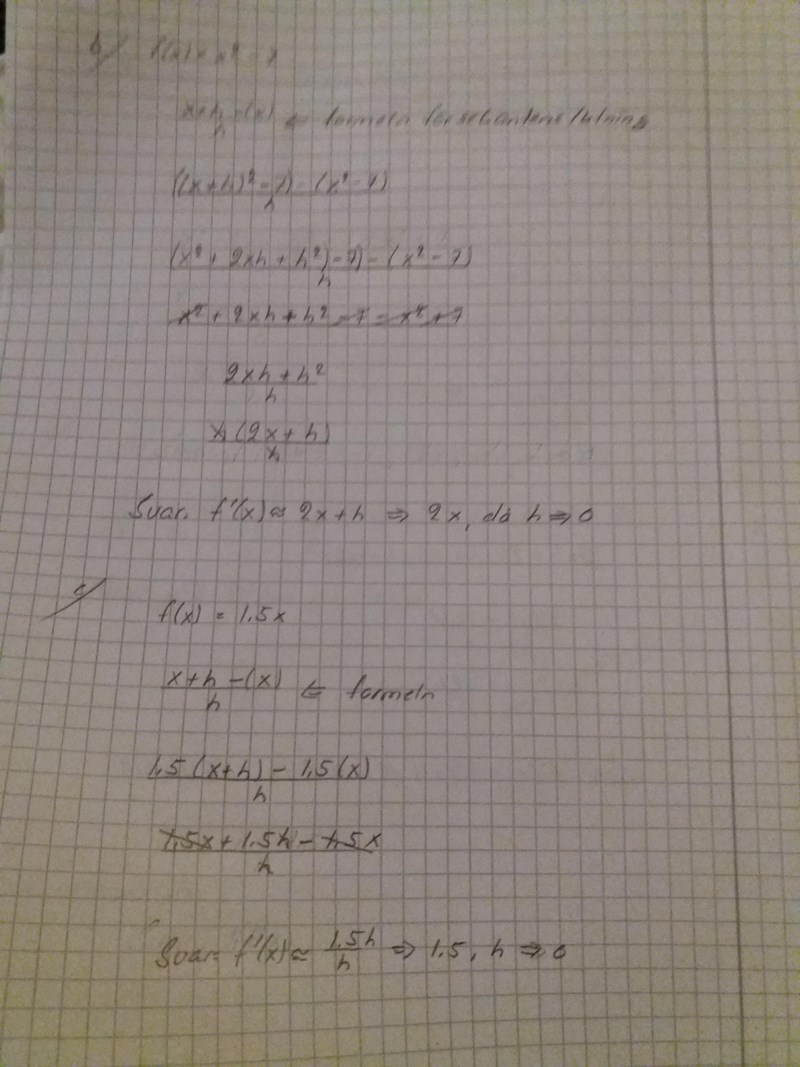 b/ f(x) = x² - 7
x+h-(x)/h ⇐ formeln för sekantens lutning
((x+h)²-7)-(x²-7)/h
(x²+2xh+h²)-7)-(x²-7)/h
x²+2xh+h²-7-x²+7
2xh+h²/h
h(2x+h)/h
Svar: f'(x)≈ 2x+h ⇒ 2x, då h⇒0
c/
f(x) = 1.5x
x+h-(x)/h ⇐ formeln
1,5(x+h)-1,5(x)/h
1,5x+1.5h-1.5x/h
Svar: f'(x)≈ 1.5h/h ⇒ 1.5, h⇒0